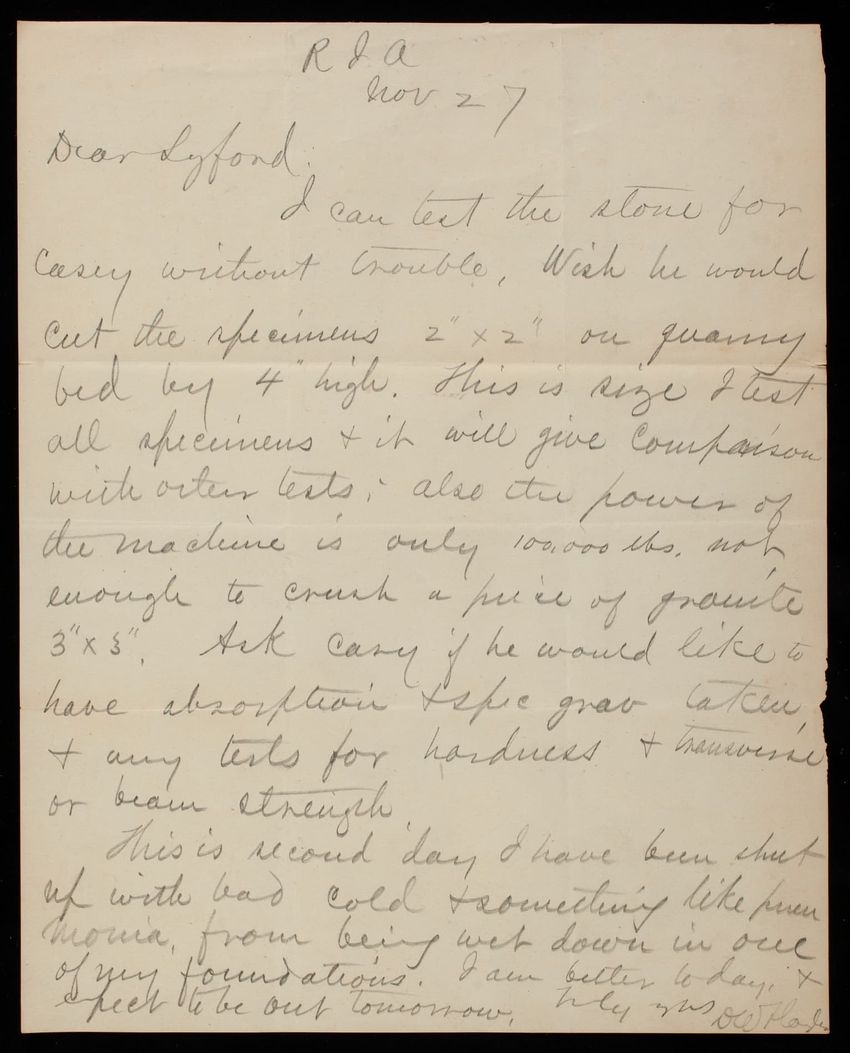 R I A
Nov 27
Dear Lyford:
I can test the stone for
Casey without trouble, Wish he would
cut the specimens 2" x 2" on quarry
bed by 4" high. This is size I test
all specimens & it will give comparison
with other tests; also the power of
the machine is only 100,000 lbs. not
enough to crush a piece of granite
3" x 3". Ask Casey if he would like to
have absorption & spec grav taken,
& any tests for hardness & transverse
or beam strength.
This is second day I have been shut
up with bad cold & something like pneu
monia, from being wet down in one
of my foundations. I am better today, &
expect to be out tomorrow. Truly yrs